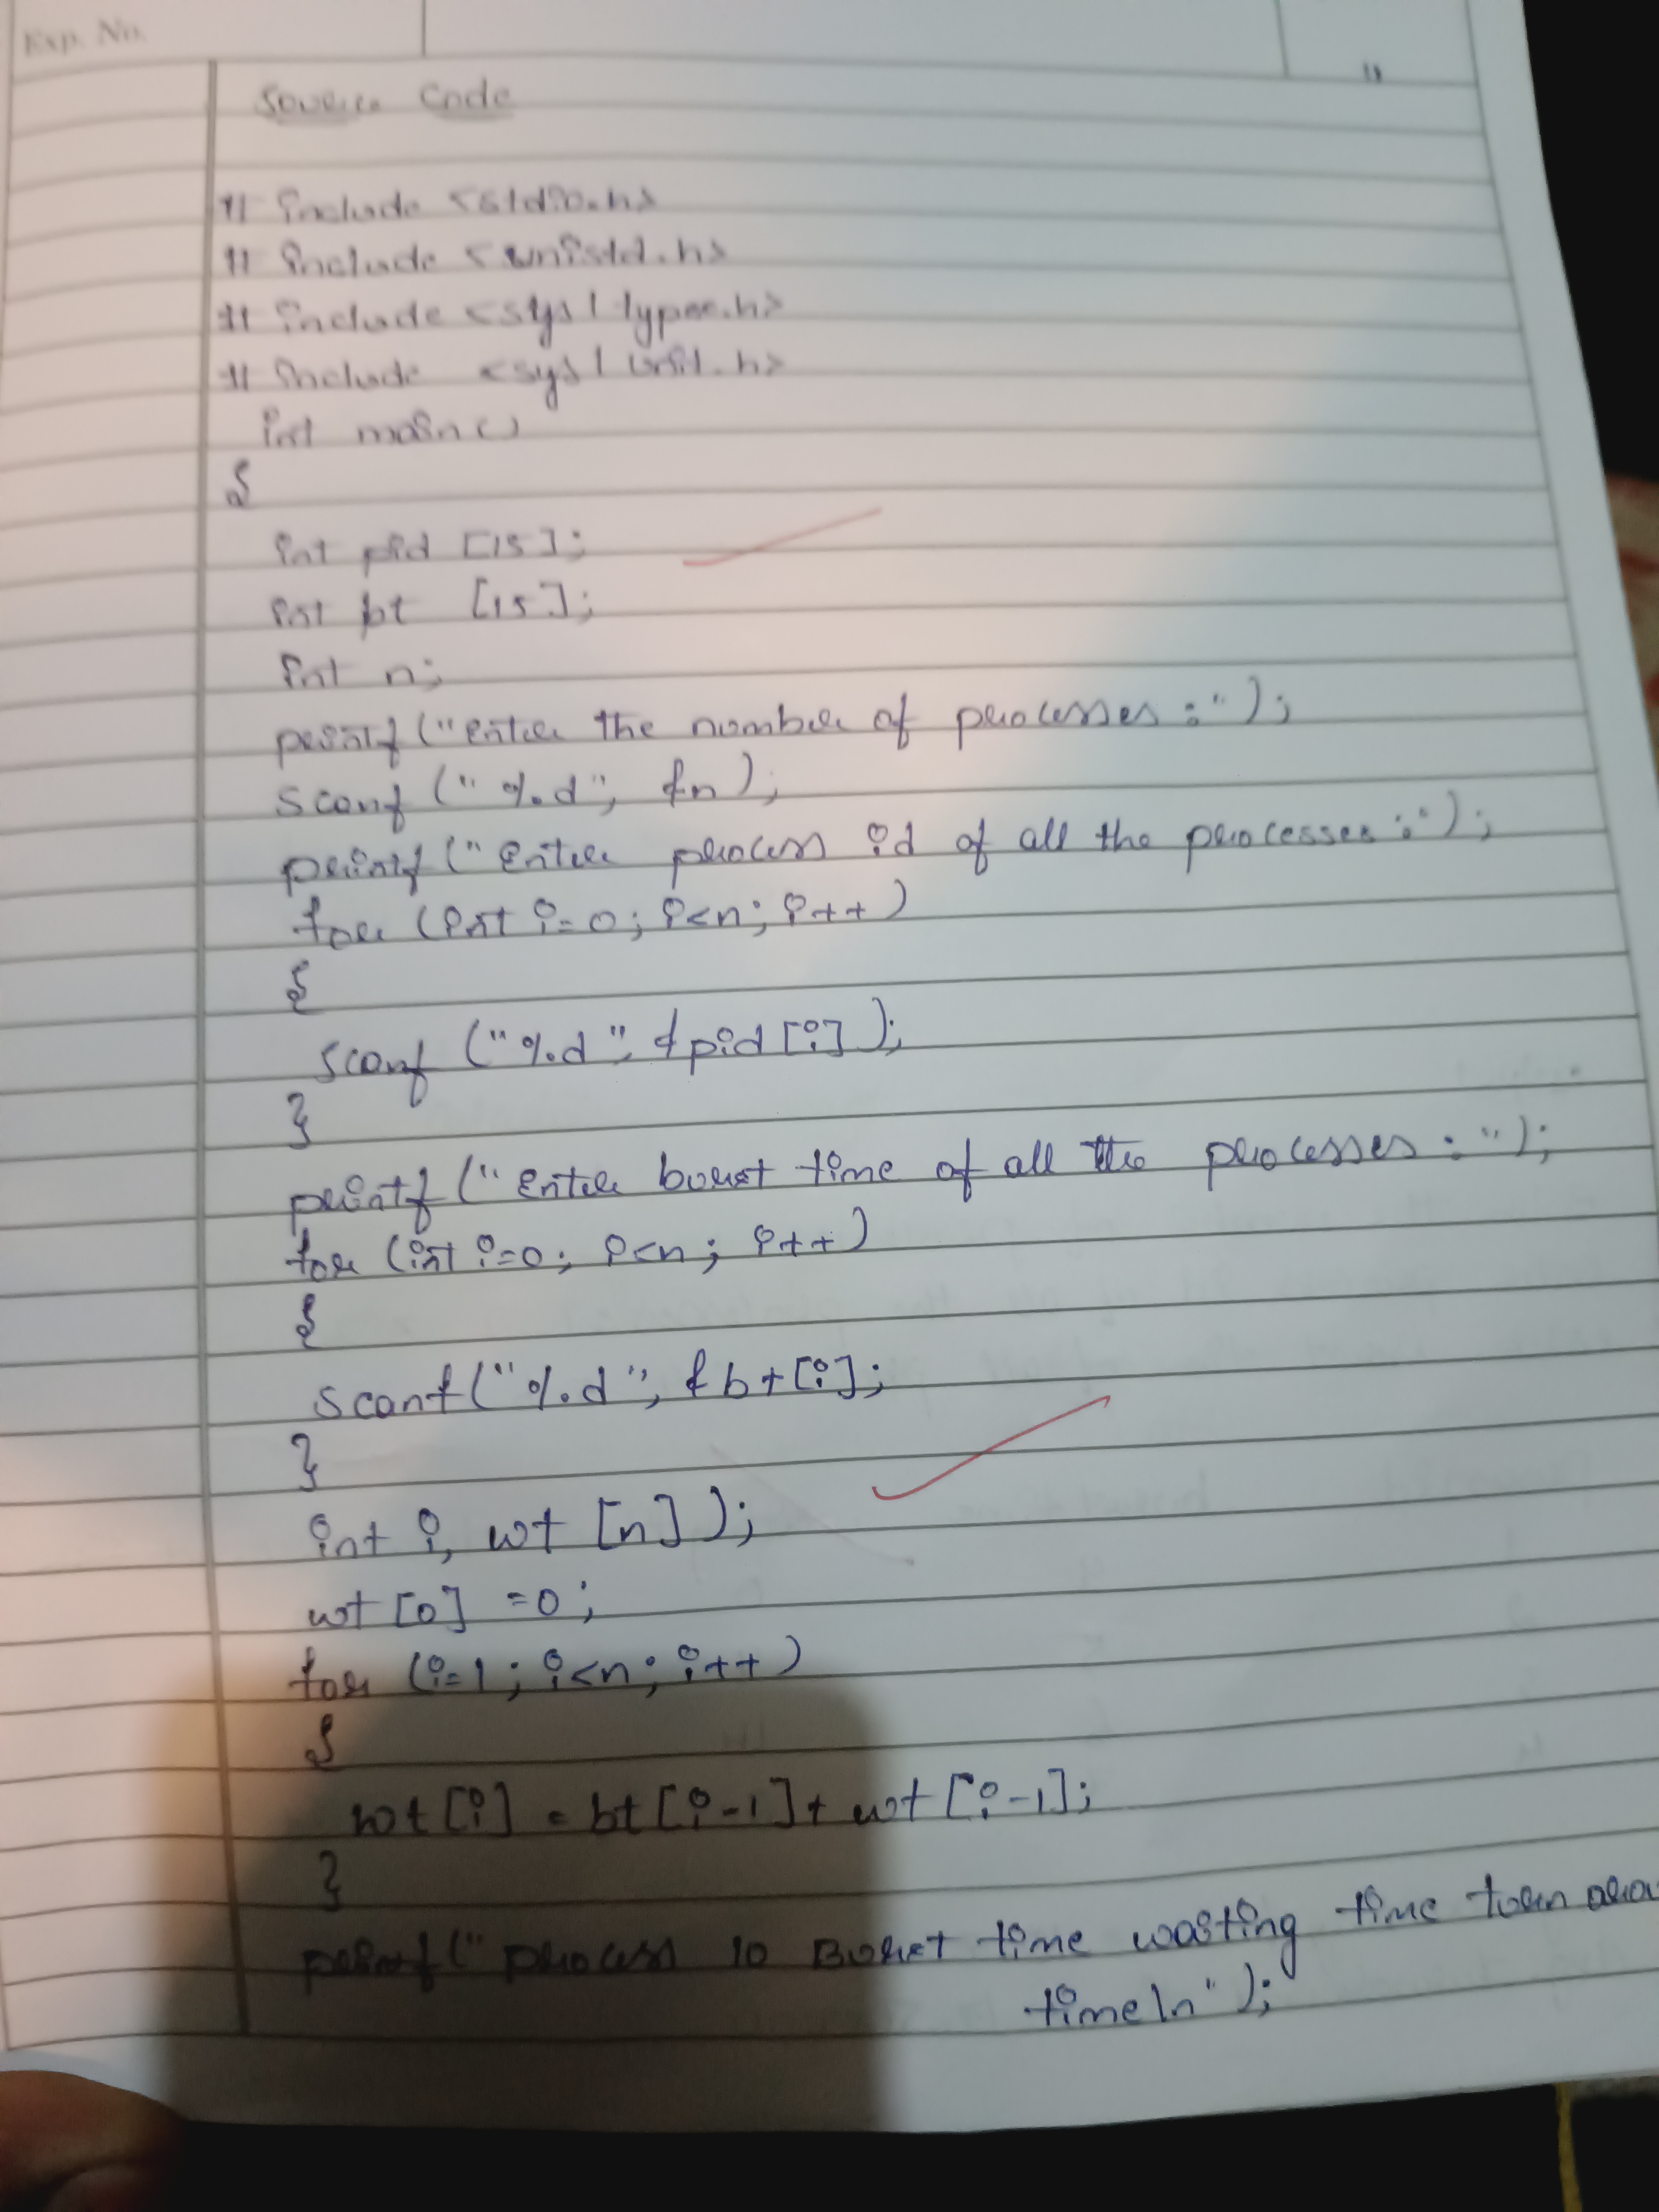 Exp. No.
Source Code
# include <stdio.h>
# include <unistd.h>
# include <sys/types.h>
# include <sys/wait.h>
int main()
{
int pid [15];
int bt [15];
int n;
printf("enter the number of processes:");
scanf ("%d", &n);
printf ("Enter process id of all the processes:");
for (int i=0; i<n; i++)
{
scanf ("%d", &pid[i]);
}
printf ("Enter burst time of all the processes:");
for (int i=0; i<n; i++)
{
scanf("%d", &bt[i];
}
int i, wt [n]);
wt [0] =0;
for (i=1; i<n; i++)
{
wt[i] = bt[i-1]+ wt[i-1];
}
printf(" process ID Burst time waiting time turn
time\n");